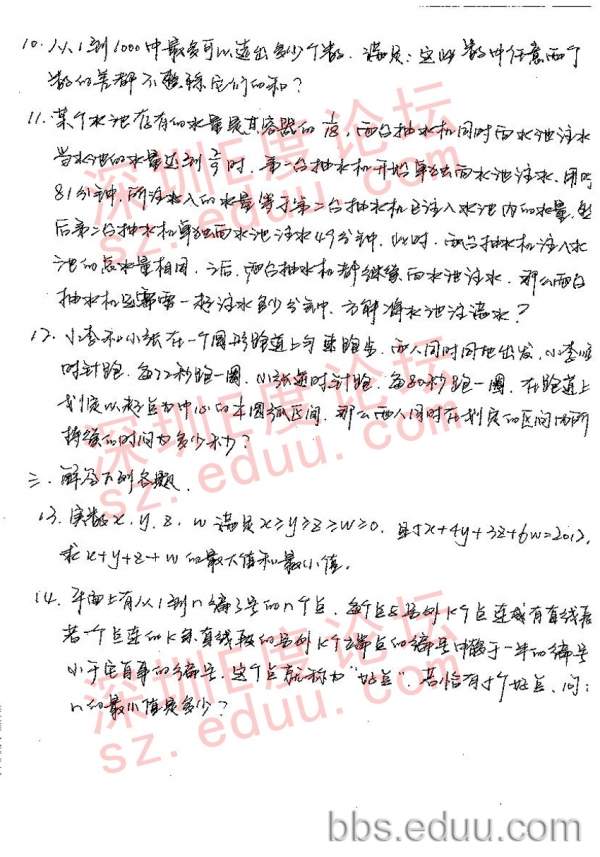 10. 从1到1000中最多可以选出多少个数，满足：这些数中任意两个
数的差都不整除它们的和？
11. 某个水池存有的水量是其容器的1/18，两台抽水机同时向水池注水
当水池的水量达到2/9时，第一台抽水机开始单独向水池注水，用时
81分钟，所注入的水量等于第二台抽水机已注入水池内的水量，然
后第二台抽水机单独向水池注水49分钟，此时，两台抽水机注入水
池的总水量相同，之后，两台抽水机都继续向水池注水，那么两台
抽水机还需要一起注水多少分钟，方能将水池注满水？
12. 小李和小张在一个圆形跑道上匀速跑步，两人同时同地出发，小李顺
时针跑，每72秒跑一圈，小张逆时针跑，每80秒跑一圈，在跑道上
划定以起点为中心的 圆弧区间，那么两人同时在划定的区间内所
持续的时间为多少秒？
三、解答下列各题
13. 实数x，y，z，w满足x≥y≥z≥w≥0，且5x+4y+3z+6w=2012，
求x+y+z+w的最大值和最小值。
14. 平面上有从1到n编号的n个点，每个点与另外K个点连成有直线段
若一个点连的K条直线段的另外K个端点的编号中 于一半的编号
小于它自身的编号，这个点就称为“好点”，若恰有5个好点，问：
n的最小值是多少？
深圳E度论坛
sz.eduu.com
深圳E度论坛
sz.eduu.com
深圳E度论坛
sz.eduu.com
bbs.eduu.com